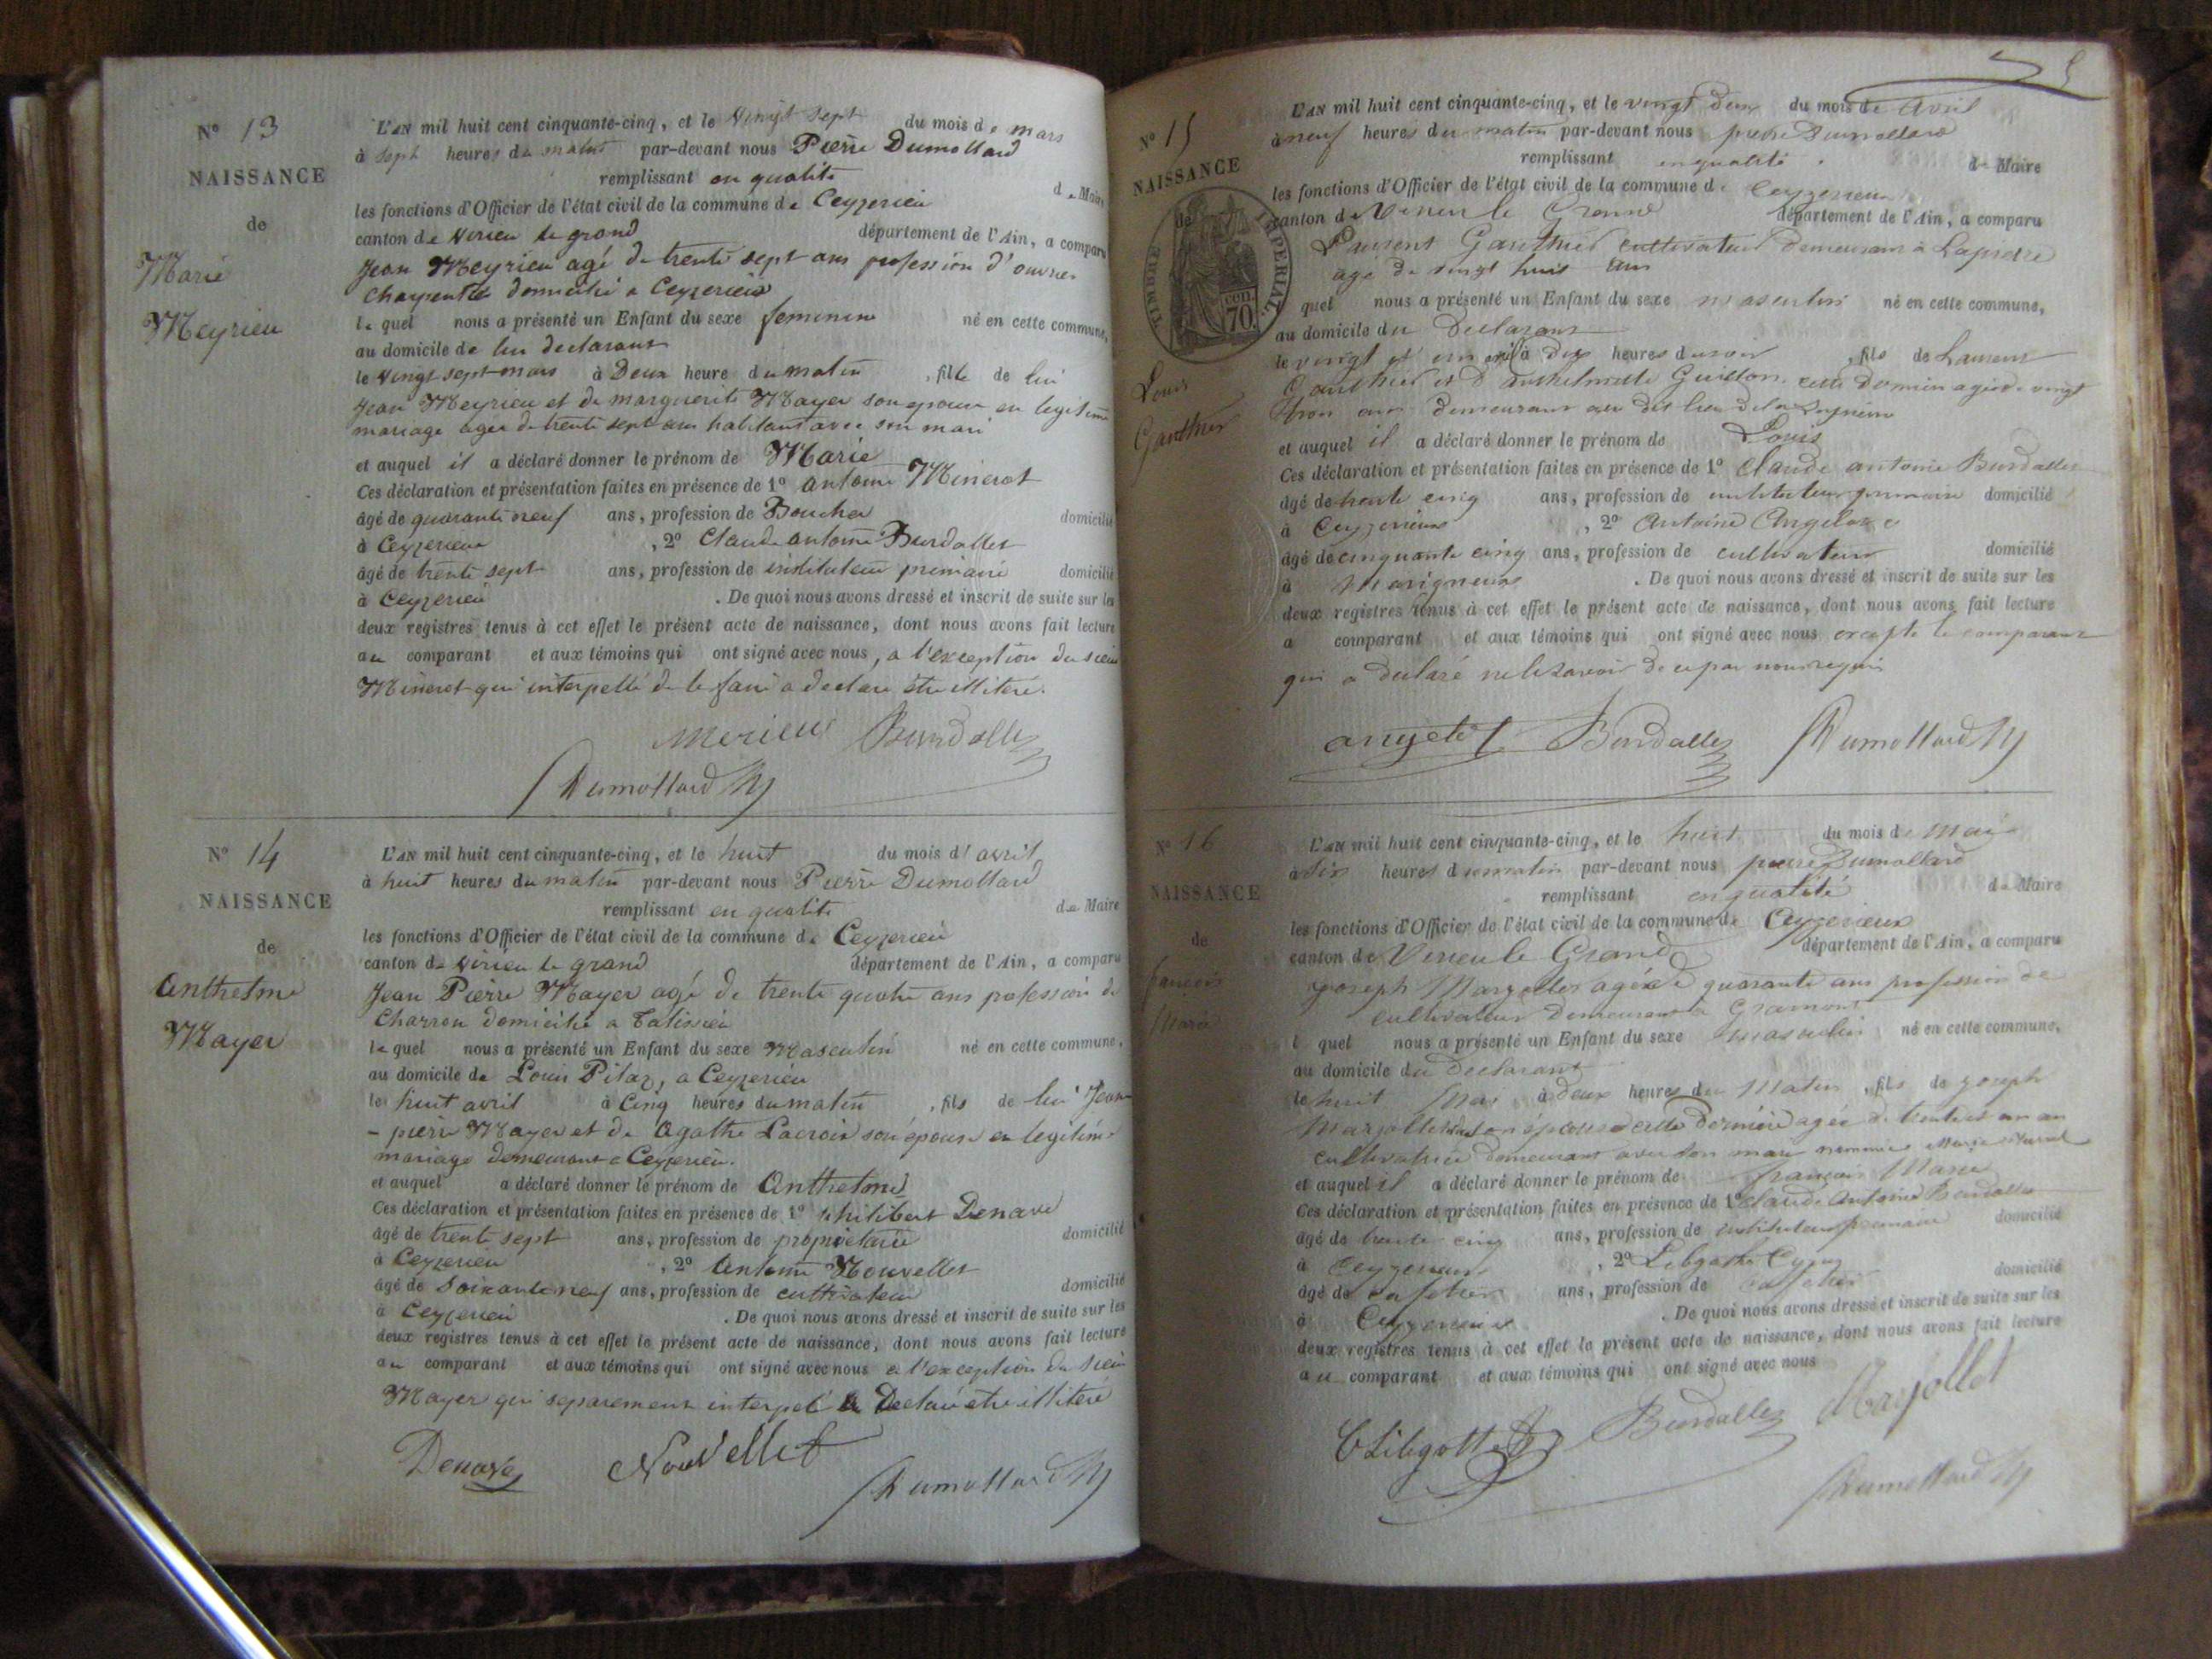 N° 13
NAISSANCE
de
Marie
Meyrieu
L'AN mil huit cent cinquante-cinq, et le vingt sept du mois de mars
à sept heures du matin par-devant nous Pierre Dumollard
remplissant en qualité de Maire
les fonctions d'Officier de l'état civil de la commune de Ceyzerieu
canton de Virieu le grand département de l'Ain, a comparu
Jean Meyrieu agé de trente sept ans profession d'ouvrier
Charpentier domicilié a Ceyzerieu
le quel nous a présenté un Enfant du sexe feminin né en cette commune,
au domicile de lui declarant
le vingt sept mars à Deux heure du matin, fille de lui
Jean Meyrieu et de marguerite Mayer son epouse en legitime
mariage agée de trente sept ans habitant avec son mari
et auquel il a déclaré donner le prénom de Marie
Ces déclaration et présentation faites en présence de 1° antoine Mineret
âgé de quarante neuf ans, profession de Boucher domicilié
à Ceyzerieu, 2° Claude antoine Burdallet
âgé de trente sept ans, profession de instituteur primaire domicilié
à Ceyzerieu. De quoi nous avons dressé et inscrit de suite sur les
deux registres tenus à cet effet le présent acte de naissance, dont nous avons fait lecture
au comparant et aux témoins qui ont signé avec nous, a l'exception du sieur
Mineret qui interpellé de le faire a declaré être illiteré.
Merieu Burdallet
Dumollard
N° 14
NAISSANCE
de
Anthelme
Mayer
L'AN mil huit cent cinquante-cinq, et le huit du mois d'avril
à huit heures du matin par-devant nous Pierre Dumollard
remplissant en qualité de Maire
les fonctions d'Officier de l'état civil de la commune de Ceyzerieu
canton de Virieu le grand département de l'Ain, a comparu
Jean Pierre Mayer agé de trente quatre ans profession de
Charron domicilié a Talissieu
le quel nous a présenté un Enfant du sexe Masculin né en cette commune,
au domicile de Louis Pitaz, a Ceyzerieu
le huit avril à Cinq heures du matin, fils de lui Jean
- pierre Mayer et de Agathe Lacroix son épouse en legitime
mariage demeurant a Ceyzerieu.
et auquel a déclaré donner le prénom de Anthelme
Ces déclaration et présentation faites en présence de 1° philibert Denave
âgé de trente sept ans, profession de propriétaire domicilié
à Ceyzerieu, 2° Antoine Nouvellet
âgé de Soixante neuf ans, profession de cultivateur domicilié
à Ceyzerieu. De quoi nous avons dressé et inscrit de suite sur les
deux registres tenus à cet effet le présent acte de naissance, dont nous avons fait lecture
au comparant et aux témoins qui ont signé avec nous a l'exception du sieur
Mayer qui separement interpelé a Declaré être illiteré
Denave Nouvellet
Dumollard
5
N° 15
NAISSANCE
de
TIMBRE IMPERIAL
cen. 70
Louis
Gauthier
L'AN mil huit cent cinquante-cinq, et le vingt deux du mois de avril
à neuf heures du matin par-devant nous pierre Dumollard
remplissant en qualité de Maire
les fonctions d'Officier de l'état civil de la commune de Ceyzerieu
canton de Virieu le Grand département de l'Ain, a comparu
Laurent Gauthier cultivateur demeurant à
agé de vingt huit ans
quel nous a présenté un Enfant du sexe masculin né en cette commune,
au domicile du Declarant
le vingt et un avril à dix heures du soir, fils de Laurent
Gauthier et d'anthelmette Guillon cette derniere agée de vingt
trois ans demeurant au dit lieu de
et auquel il a déclaré donner le prénom de Louis
Ces déclaration et présentation faites en présence de 1° Claude antoine Burdallet
âgé de trente cinq ans, profession de instituteur primaire domicilié
à Ceyzerieu, 2° Antoine
âgé de cinquante cinq ans, profession de cultivateur domicilié
à. De quoi nous avons dressé et inscrit de suite sur les
deux registres tenus à cet effet le présent acte de naissance, dont nous avons fait lecture
a comparant et aux témoins qui ont signé avec nous excepté le comparant
qui a declaré ne le savoir de ce par nous requis
Burdallet Dumollard
N° 16
NAISSANCE
de
françois
Marie
L'AN mil huit cent cinquante-cinq, et le huit du mois de Mai
à Six heures du matin par-devant nous pierre Dumollard
remplissant en qualité de Maire
les fonctions d'Officier de l'état civil de la commune de Ceyzerieux
canton de Virieu le Grand département de l'Ain, a comparu
joseph Marjollet agé de quarante ans profession de
cultivateur Demeurant a Gramont
l quel nous a présenté un Enfant du sexe masculin né en cette commune,
au domicile du Declarant
le huit Mai à deux heures du Matin, fils de joseph
Marjollet et de son épouse cette dernière agée de trente et un an
cultivatrice demeurant avec son mari nommée Marie
et auquel il a déclaré donner le prénom de françois Marie
Ces déclaration et présentation faites en présence de 1° Claude Antoine Burdallet
âgé de trente cinq ans, profession de instituteur primaire domicilié
à Ceyzerieux, 2°
âgé de ans, profession de domicilié
à Ceyzerieux. De quoi nous avons dressé et inscrit de suite sur les
deux registres tenus à cet effet le présent acte de naissance, dont nous avons fait lecture
au comparant et aux témoins qui ont signé avec nous
Burdallet Marjollet
Dumollard